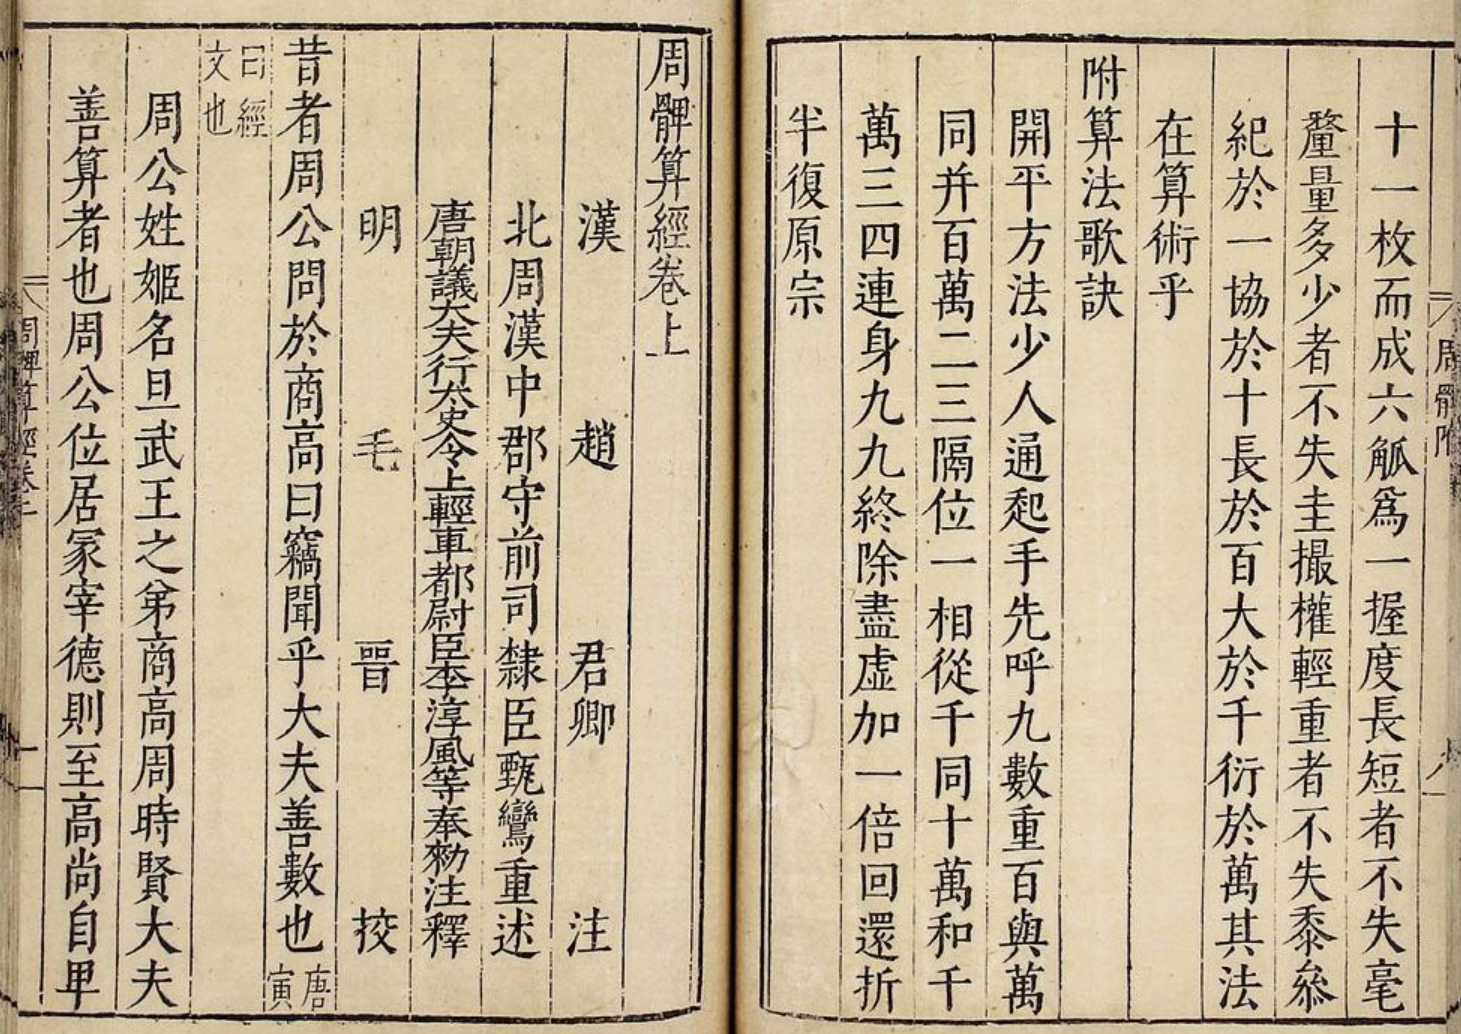 十一枚而成六觚爲一握度長短者不失毫
釐量多少者不失圭撮權輕重者不失黍絫
紀於一協於十長於百大於千衍於萬其法
在算術乎
附算法歌訣
開平方法少人通起手先呼九數重百與萬
同并百萬二三隔位一相從千同十萬和千
萬三四連身九九終除盡虛加一倍回還折
半復原宗
周髀算經卷上
漢 趙 君卿 注
北周漢中郡守前司隸臣甄鸞重述
唐朝議大夫行太史令上輕車都尉臣李淳風等奉勑注釋
明 毛 晉 挍
昔者周公問於商高曰竊聞乎大夫善數也唐寅
曰經文也
周公姓姬名旦武王之弟商高周時賢大夫
善算者也周公位居冢宰德則至高尚自卑
周髀算經卷上
一